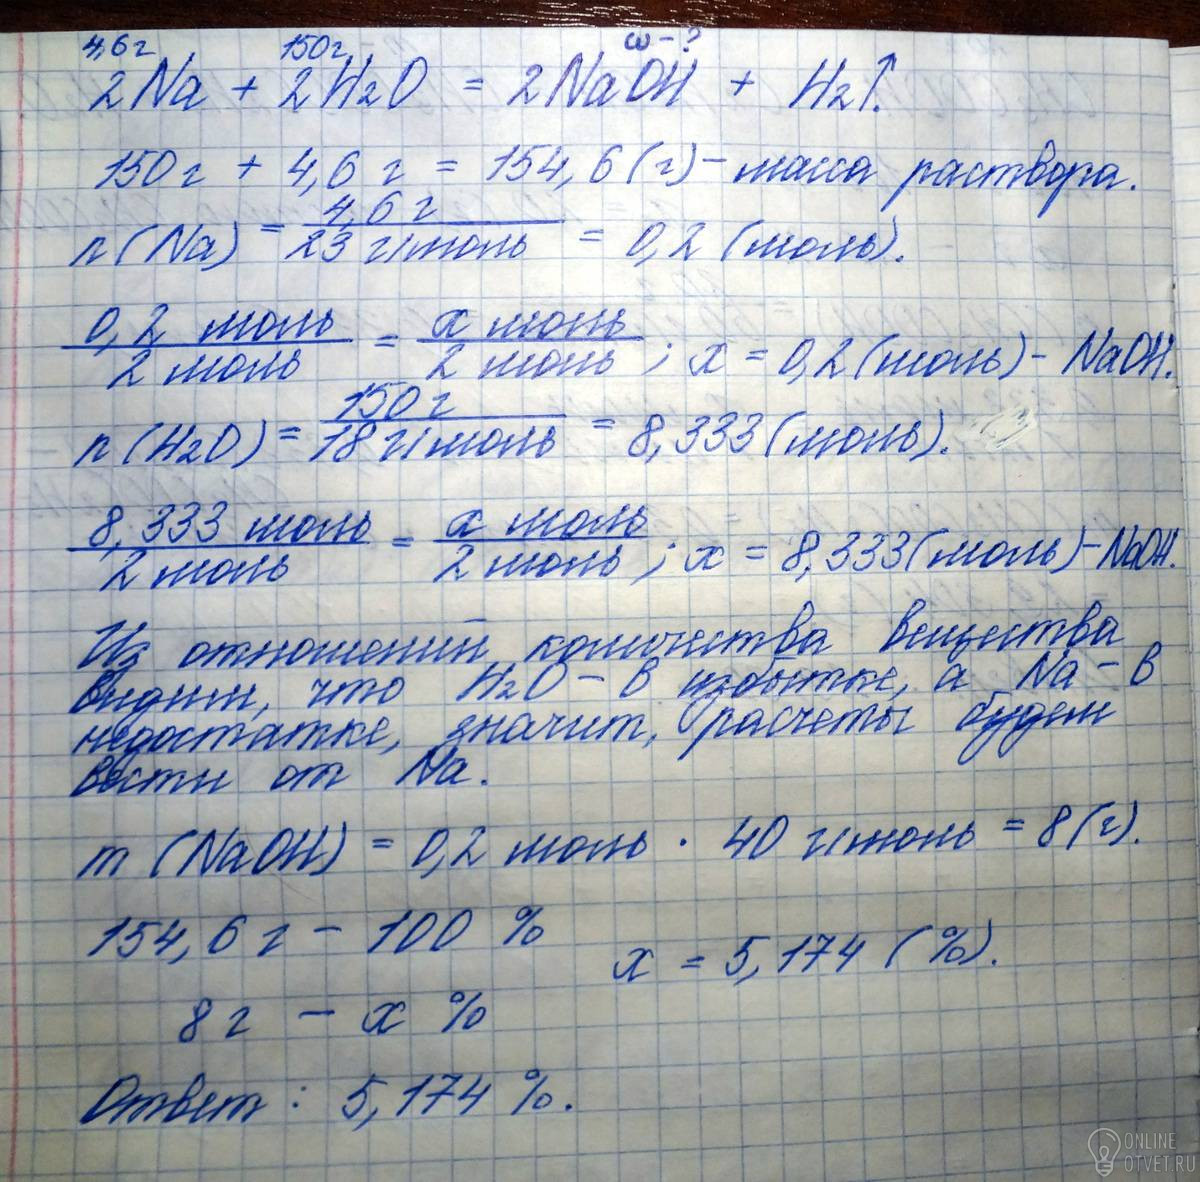 4,6 г 150 г ω - ?
2Na + 2H₂O = 2NaOH + H₂↑.
150 г + 4,6 г = 154,6 (г) - масса раствора.
n (Na) = 4,6 г / 23 г/моль = 0,2 (моль).
0,2 моль / 2 моль = x моль / 2 моль ; x = 0,2 (моль) - NaOH.
n (H₂O) = 150 г / 18 г/моль = 8,333 (моль).
8,333 моль / 2 моль = x моль / 2 моль ; x = 8,333 (моль) - NaOH.
Из отношений количества вещества
видим, что H₂O - в избытке, а Na - в
недостатке, значит, расчеты будем
вести от Na.
m (NaOH) = 0,2 моль · 40 г/моль = 8 (г).
154,6 г - 100 %
x = 5,174 (%).
8 г - x %
Ответ: 5,174 %.
ONLINE
OTVET.RU